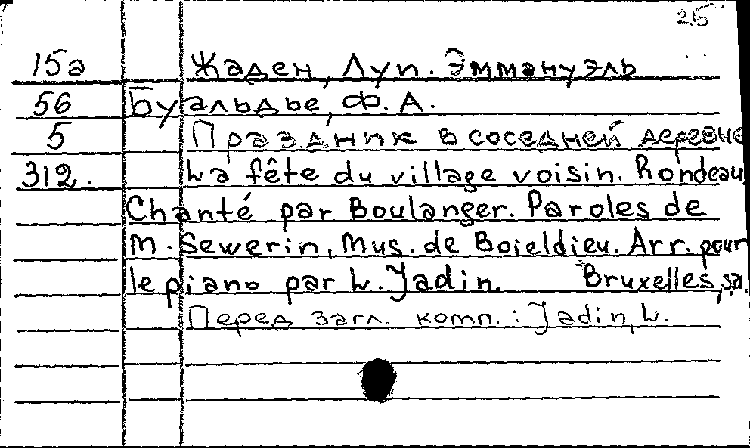 25
15а Жаден, Луи. Эммануэль
56 Буальдье, Ф. А.
5 Праздник в соседней деревне
312. La fête du village voisin. Rondeau
Chanté par Boulanger. Paroles de
M. Sewerin, Mus. de Boieldieu. Arr. pour
le piano par L. Jadin. Bruxelles, s.a.
Перед загл. комп.: Jadin, L.